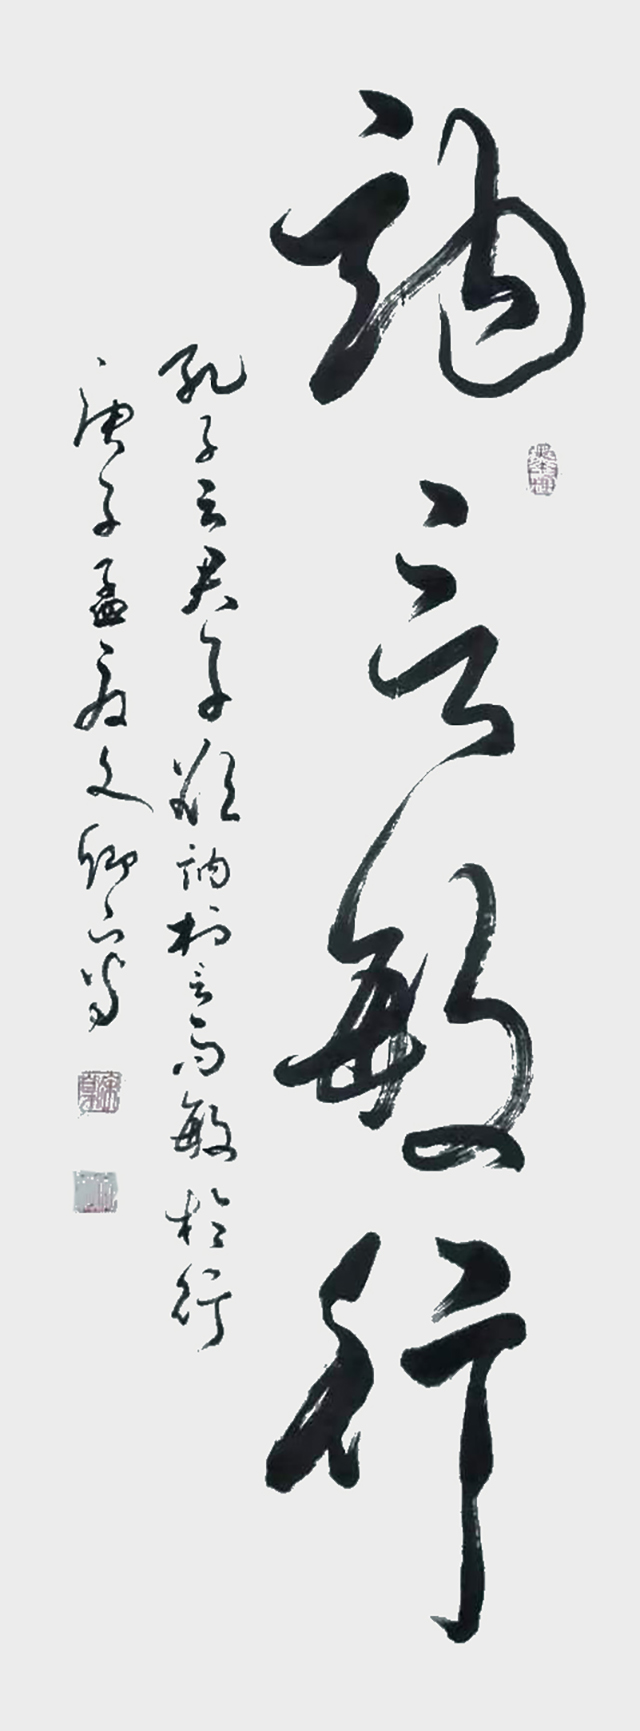 訥言敏行
孔子云君子欲訥於言而敏於行
庚子孟夏文卿書